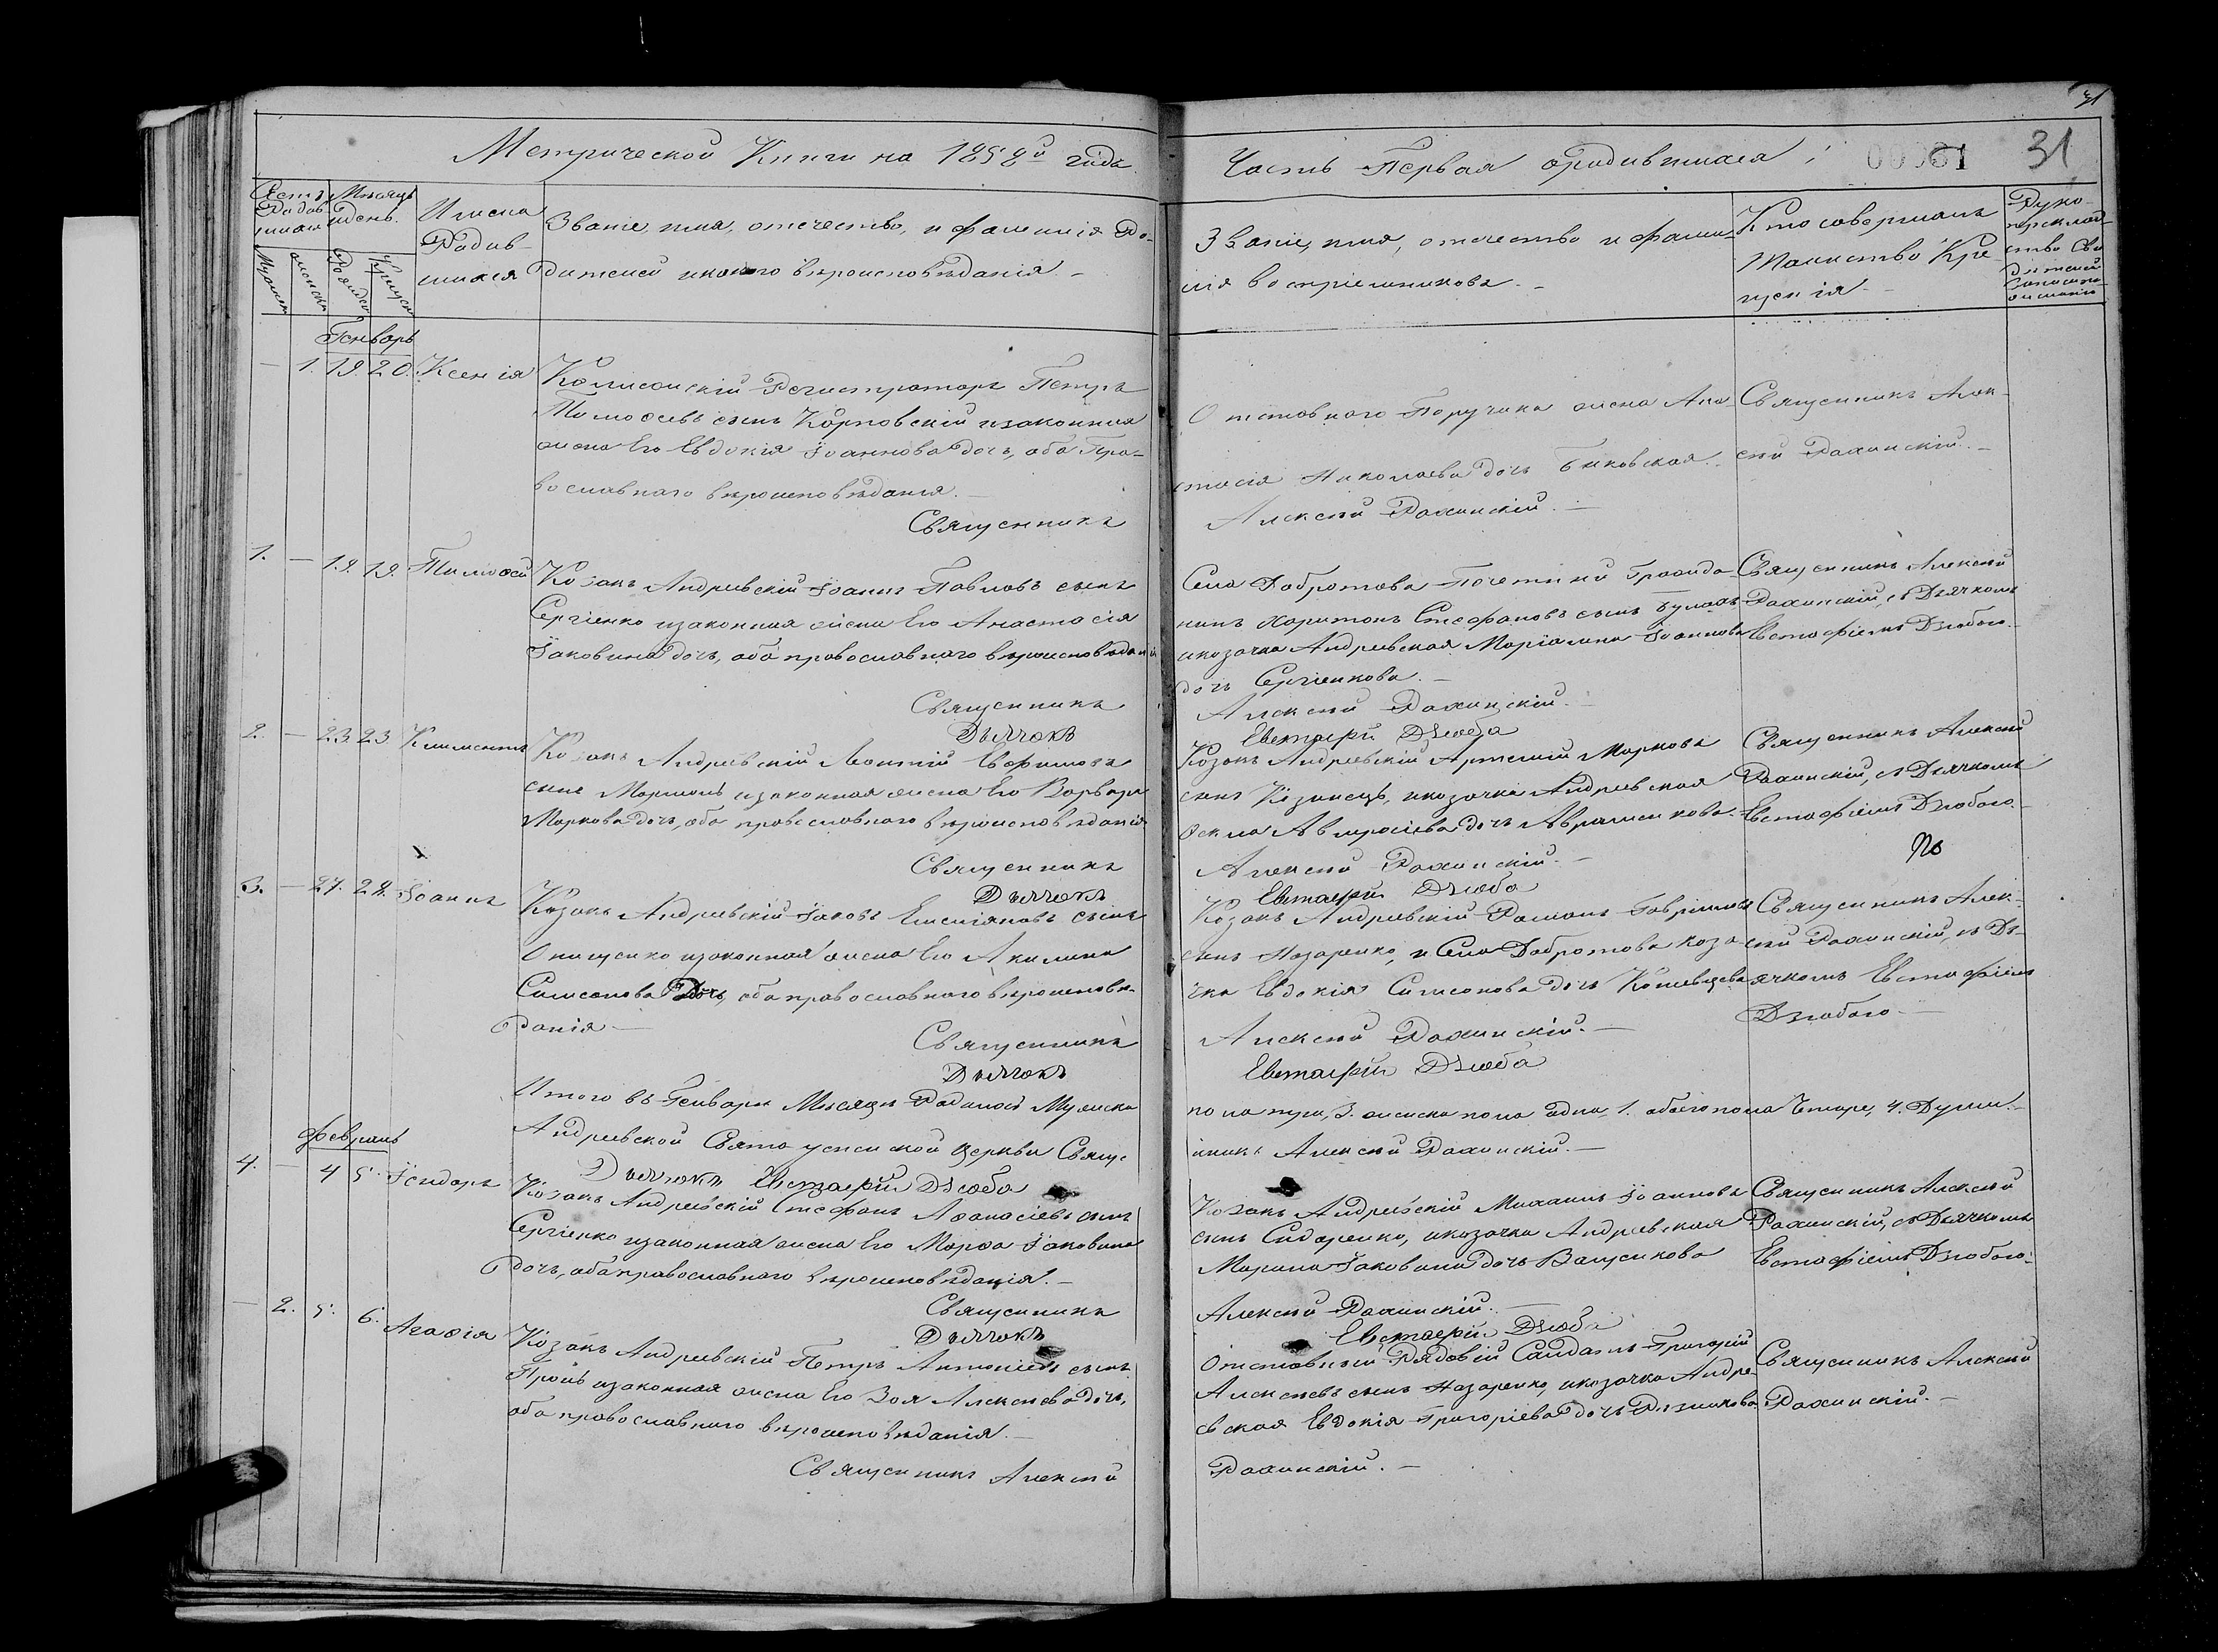 Метрической Книги на 1858й года.
Часть Первая о родившихся;
00031
31
31
Счетъ Родившихся
Мѣсяцъ и день.
Имена Родив-
шихся
Званіе, имя, отечество, и фамилія Ро-
дителей и какого вѣроисповѣданія —
Званіе, имя, отечество и фами-
лія воспріемниковъ. —
Кто совершалъ
Таинство Кре-
щенія —
Руко-
приклад-
ство
Генварь
— 1. 19. 20. Ксенія
Колисскій Регистраторъ Петръ
Тимоѳеевъ сынъ Карповскій и законная
жена Его Евдокія Іоаннова дочь, оба Пра-
вославнаго вѣроисповѣданія. —
Священникъ
Отставного Поручика жена Ана-
стасія Николаева дочь Биковская.
Алексѣй Рохинскій. —
Священникъ Алек-
сѣй Рохинскій. —
1. — 19. 19. Тимоѳей
Козакъ Андреевскій Іоаннъ Павловъ сынъ
Сергіенко и законная жена Его Анастасія
Іаковина дочь, оба православнаго вѣроисповѣданія
Священникъ
Дьячокъ
Села Добротова Почетній Гражда-
нинъ Харитонъ Стефановъ сынъ
и козачка Андреевская Маріамна Іоаннова
дочь Сергіенкова. —
Алексѣй Рохинскій. —
Евстафій Дзюба
Священникъ Алексѣй
Рохинскій, съ Дьячкомъ
Евстафіемъ Дзюбою. —
2. — 23. 23 Климентъ
Козакъ Андреевскій Леонтій Евфимовъ
сынъ и законная жена Его Варвара
Маркова дочь, оба православнаго вѣроисповѣданія
Священникъ
Дьячокъ
Козакъ Андреевскій Артемій Марковъ
сынъ Козинецъ, и козачка Андреевская
Ѳекла Амвросіева дочь Авраменкова. —
Алексѣй Рохинскій. —
Евстафій Дзюба
Священникъ Алексѣй
Рохинскій, съ Дьячкомъ
Евстафіемъ Дзюбою. —
3. — 27. 28. Іоаннъ
Козакъ Андреевскій Іаковъ Емеліяновъ сынъ
Онищенко и законная жена Его Акилина
Самсонова дочь, оба православнаго вѣроисповѣ-
данія —
Священникъ
Дьячокъ
Козакъ Андреевскій Романъ Гавріиловъ
сынъ Назаренко, и Села Добротова коза-
чка Евдокія Самсонова дочь Кошевцева
Алексѣй Рохинскій. —
Евстафій Дзюба
Священникъ Алек-
сѣй Рохинскій, съ Дь-
ячкомъ Евстафіемъ
Дзюбою —
Итого въ Генварѣ Мѣсяцѣ Родилось Мужеска
пола три, 3. женска пола одна, 1. обоего пола Четыре, 4. Души. —
Андреевской Свято успенской Церкви Свяще-
нникъ Алексѣй Рохинскій. —
Дьячокъ Евстафій Дзюба
Февраль
4. — 4 5. Ісидоръ
Козакъ Андреевскій Стефанъ Аѳанасіевъ сынъ
Сергіенко и законная жена Его Марѳа Іаковина
дочь, оба православнаго вѣроисповѣданія. —
Священникъ
Дьячокъ
Козакъ Андреевскій Михаилъ Іоанновъ
сынъ Сидоренко, и козачка Андреевская
Марина Іаковина дочь Ващенкова
Алексѣй Рохинскій. —
Евстафій Дзюба
Священникъ Алексѣй
Рохинскій, съ Дьячкомъ
Евстафіемъ Дзюбою.
— 2. 5. 6. Агаѳія
Козакъ Андреевскій Петръ Антоніевъ сынъ
и законная жена Его Зоя Алексѣева дочь,
оба православнаго вѣроисповѣданія. —
Священникъ Алексѣй
Отставный Рядовій Салдатъ Григорій
Алексѣевъ сынъ Назаренко, и козачка Андре-
евская Евдокія Григоріева дочь
Рохинскій. —
Священникъ Алексѣй
Рохинскій. —